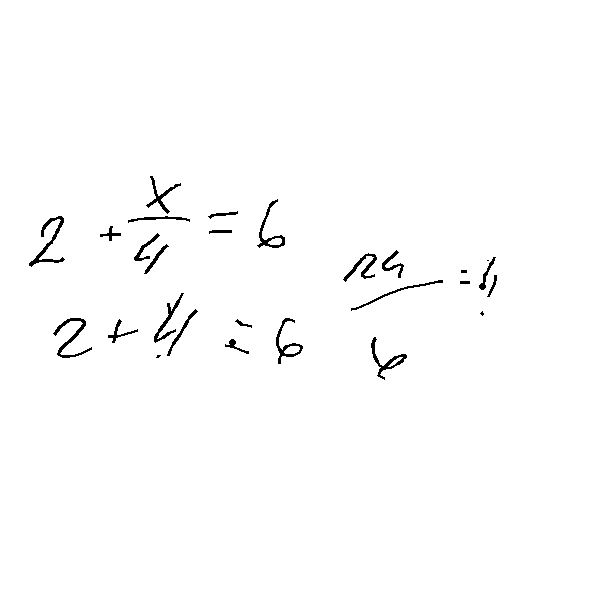 2 + x/4 = 6
2 + 4 = 6
24/6 = 4